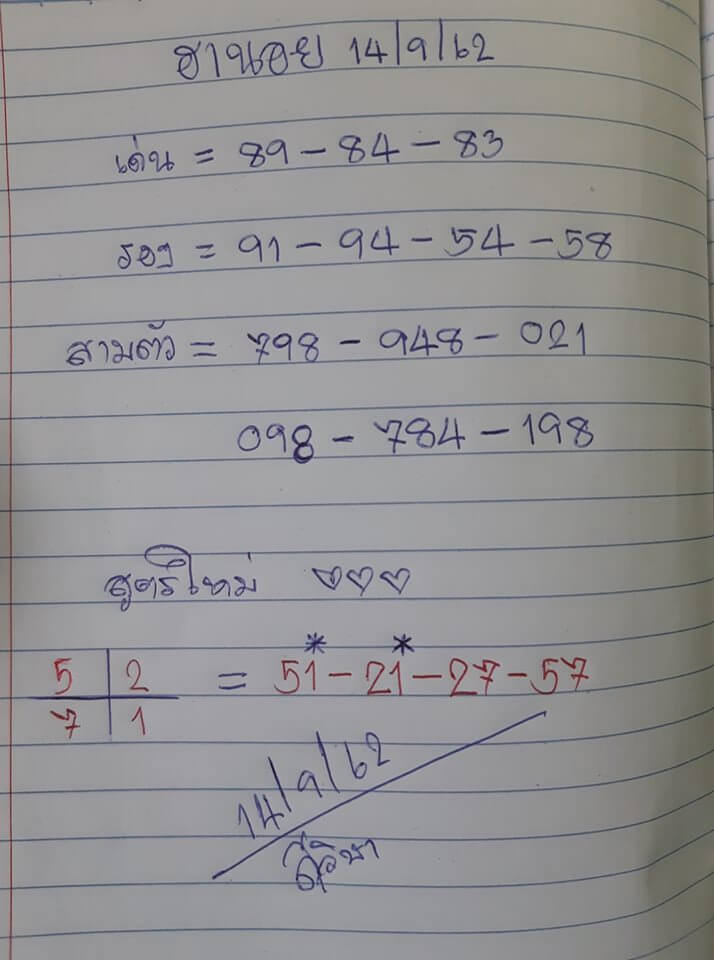 ฮานอย 14/9/62
เด่น = 89 - 84 - 83
รอง = 91 - 94 - 54 - 58
สามตัว = 798 - 948 - 021
098 - 784 - 198
สูตรใหม่ ♡♡♡
5 2 = 51 - 21 - 27 - 57
7 1
14/9/62